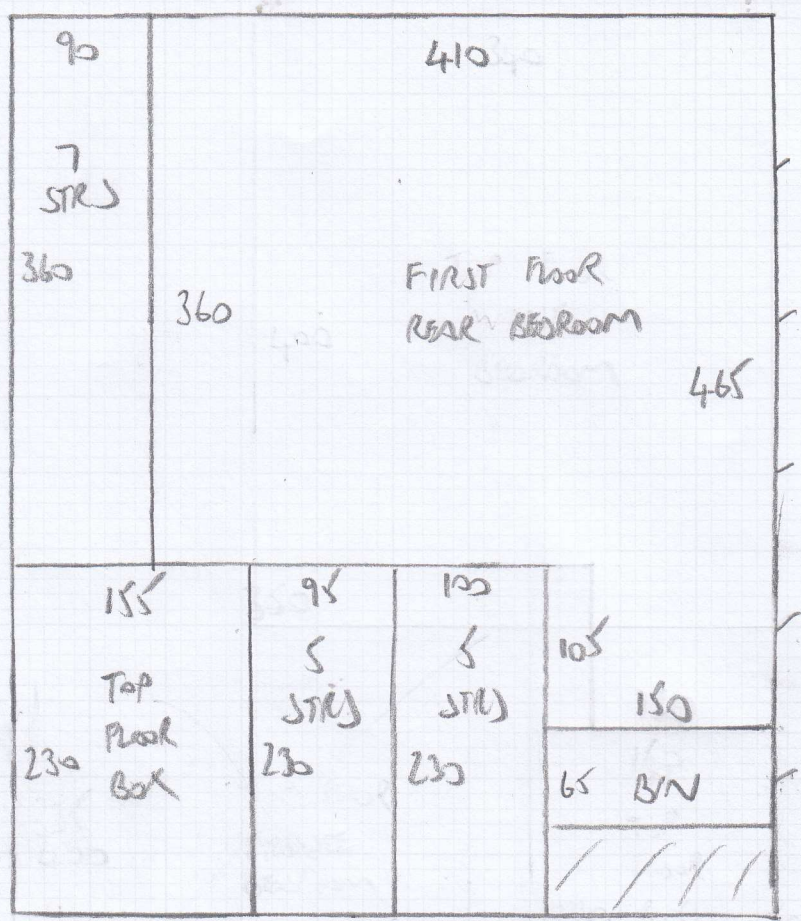 90
410
7
STRS
360
360
FIRST FLOOR
REAR BEDROOM
465
155
95
100
TOP
FLOOR
BOX
230
5
STRS
230
5
STRS
230
105
150
65 BIN